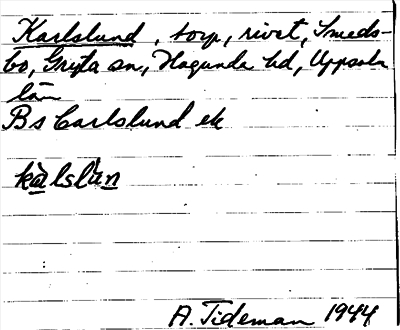 Karlslund, torp, rivet, Smeds-
bo, Gryta sn, Hagunda hd, Uppsala
län
Bs Carlslund ek
kàlslùn
A. Tideman 1944